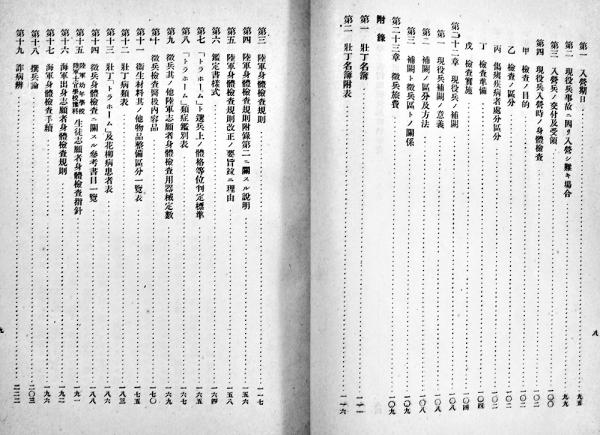 第一 入營期日 九五
第二 現役兵事故ニ因リ入營シ難キ場合 九九
第三 入營兵ノ交付及受領 一〇〇
第四 現役兵入營時ノ身體檢査 一〇一
甲 檢査ノ目的 一〇一
乙 檢査ノ區分 一〇二
丙 傷痍疾病者處分區分 一〇二
丁 檢査準備 一〇四
戊 檢査實施 一〇四
第二十二章 現役兵ノ補闕 一〇八
第一 現役兵補闕ノ意義 一〇八
第二 補闕ノ區分及方法 一〇八
第三 補闕ト徵兵區トノ關係 一〇九
第二十三章 徵兵旅費 一〇九
附錄
第一 壯丁名簿
第二 壯丁名簿附表 一一六
八
第三 陸軍身體檢査規則 一一七
第四 陸軍身體檢査規則附錄第二ニ關スル說明 一五六
第五 陸軍身體檢査規則改正ノ要旨竝ニ理由 一五八
第六 鑑定書樣式 一六四
第七 「トラホーム」ト選兵上ノ體格等位判定標準 一六五
第八 「トラホーム」類症鑑別表 一六六
第九 徵兵其ノ他陸軍志願者身體檢査用器械定數 一六九
第十 徵兵檢査醫扱內容品 一七〇
第十一 衞生材料其ノ他物品整備區分一覽表 一七五
第十二 壯丁病類表 一八三
第十三 壯丁「トラホーム」及花柳病患者表 一八六
第十四 徵兵身體檢査ニ關スル參考書目一覽 一八八
第十五 陸軍幼年學校 陸軍士官學校豫科 生徒志願者身體檢査指針 一九一
第十六 海軍出身志願者身體檢査規則 一九二
第十七 海軍身體檢査手續 一九六
第十八 撰兵論 二〇三
第十九 詐病辨 二二二
九